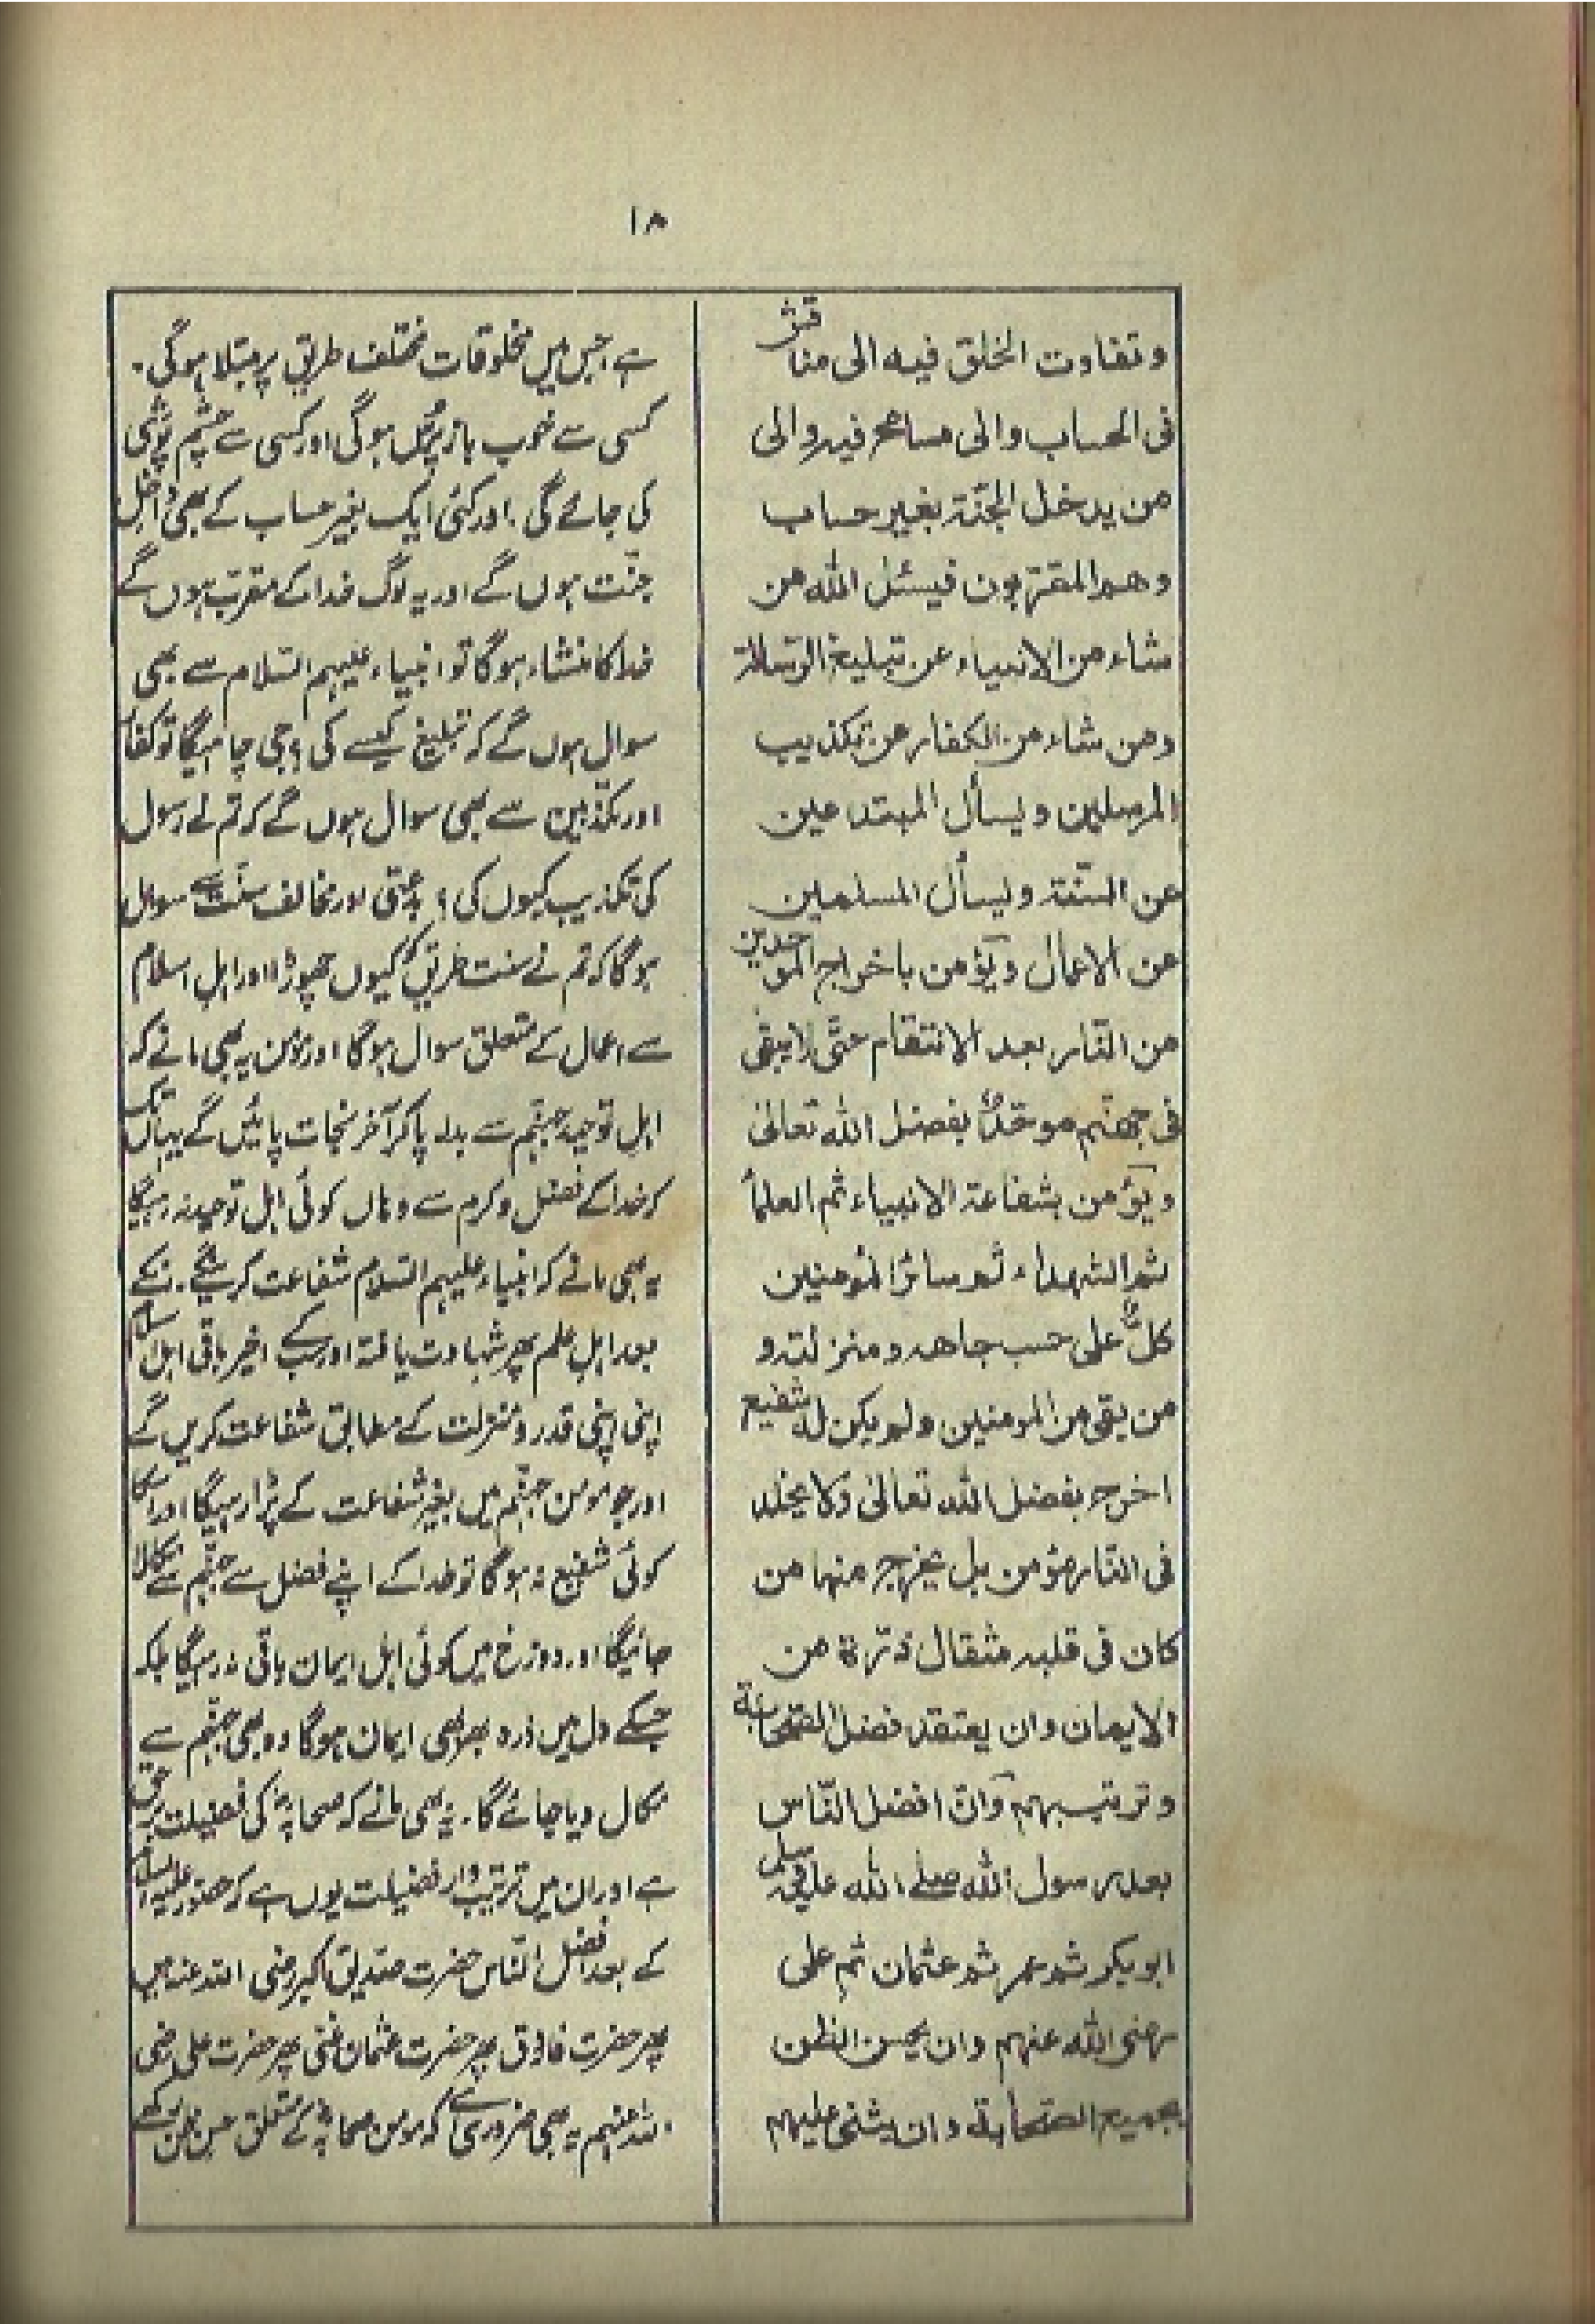 ۱۸
وتفاوت الخلق فیه الی مناقش
فی الحساب والی مسامح فیه والی
من یدخل الجنّة بغیر حساب
وهم المقرّبون فیسئل الله من
شاء من الانبیاء عن تبلیغ الرّسالة
ومن شاء من الکفار عن تکذیب
المرسلین ویسأل المبتدعین
عن السّنّة ویسأل المسلمین
عن الاعمال ویؤمن باخراج الموحدین
من النّار بعد الانتقام حتّٰی لایبقٰی
فی جهنّم موحّدٌ بفضل الله تعالیٰ
ویؤمن بشفاعة الانبیاء ثم العلمأ
ثم الشهداء ثم سائر المؤمنین
کلٌّ علی حسب جاهه ومنزلته و
من بقی من المومنین ولم یکن له شفیع
اخرج بفضل الله تعالیٰ ولا یخلد
فی النّار مؤمن بل یخرج منها من
کان فی قلبه مثقال ذرة من
الایمان وان یعتقد فضل الصّحابة
وترتیبهم وانّ افضل النّاس
بعد رسول الله صلے الله علیه وسلم
ابوبکر ثم عمر ثم عثمان ثم علی
رضی الله عنهم وان یحسن الظن
بجمیع الصّحابة وان یثنی علیهم
ہے جس میں مخلوقات مختلف طریق پر مبتلا ہوگی۔
کسی سے خوب باز پُرس ہوگی اور کسی سے چشم پوشی
کی جائے گی۔ اور کئی ایک بغیر حساب کے بھی داخل
جنّت ہوں گے اور یہ لوگ خدا کے مقرب ہوں گے
خدا کا منشاء ہوگا تو انبیاء علیہم السّلام سے بھی
سوال ہوں گے کہ تبلیغ کیسے کی؟ جی چاہیگا تو کفار
اور مکذّبین سے بھی سوال ہوں گے کہ تم نے رسول
کی تکذیب کیوں کی؟ بدعتی اور مخالف سنّت سے سوال
ہوگا کہ تم نے سنت طریق کیوں چھوڑا؟ اور اہلِ اسلام
سے اعمال کے متعلق سوال ہوگا اور مومن یہ بھی مانے کہ
اہل توحید جہنّم سے بدلہ پاکر آخر نجات پائیں گے یہاں تک
کہ خدا کے فضل و کرم سے وہاں کوئی اہل توحید نہ رہیگا
یہ بھی مانے کہ انبیاء علیہم السّلام شفاعت کرینگے۔ انکے
بعد اہلِ علم پھر شہادت یافتہ اور سب کے اخیر باقی اہل اسلام
اپنی اپنی قدر و منزلت کے مطابق شفاعت کریں گے
اور جو مومن جہنّم میں بغیر شفاعت کے پڑا رہیگا اور اسکا
کوئی شفیع نہ ہوگا تو خدا کے اپنے فضل سے جہنّم سے نکالا
جائیگا اور دوزخ میں کوئی اہل ایمان باقی نہ رہیگا بلکہ
جسکے دل میں ذرہ بھر بھی ایمان ہوگا وہ بھی جہنّم سے
نکال دیا جائے گا۔ یہ بھی مانے کہ صحابہؓ کی فضیلت برحق
ہے اور ان میں ترتیب وار فضیلت یوں ہے کہ حضور علیہ السلام
کے بعد افضل النّاس حضرت صدّیق اکبر رضی اللہ عنہ ہیں
پھر حضرت فاروق پھر حضرت عثمان غنی پھر حضرت علی رضی
اللہ عنہم یہ بھی ضروری ہے کہ مومن صحابہؓ کے متعلق حسن ظن رکھے